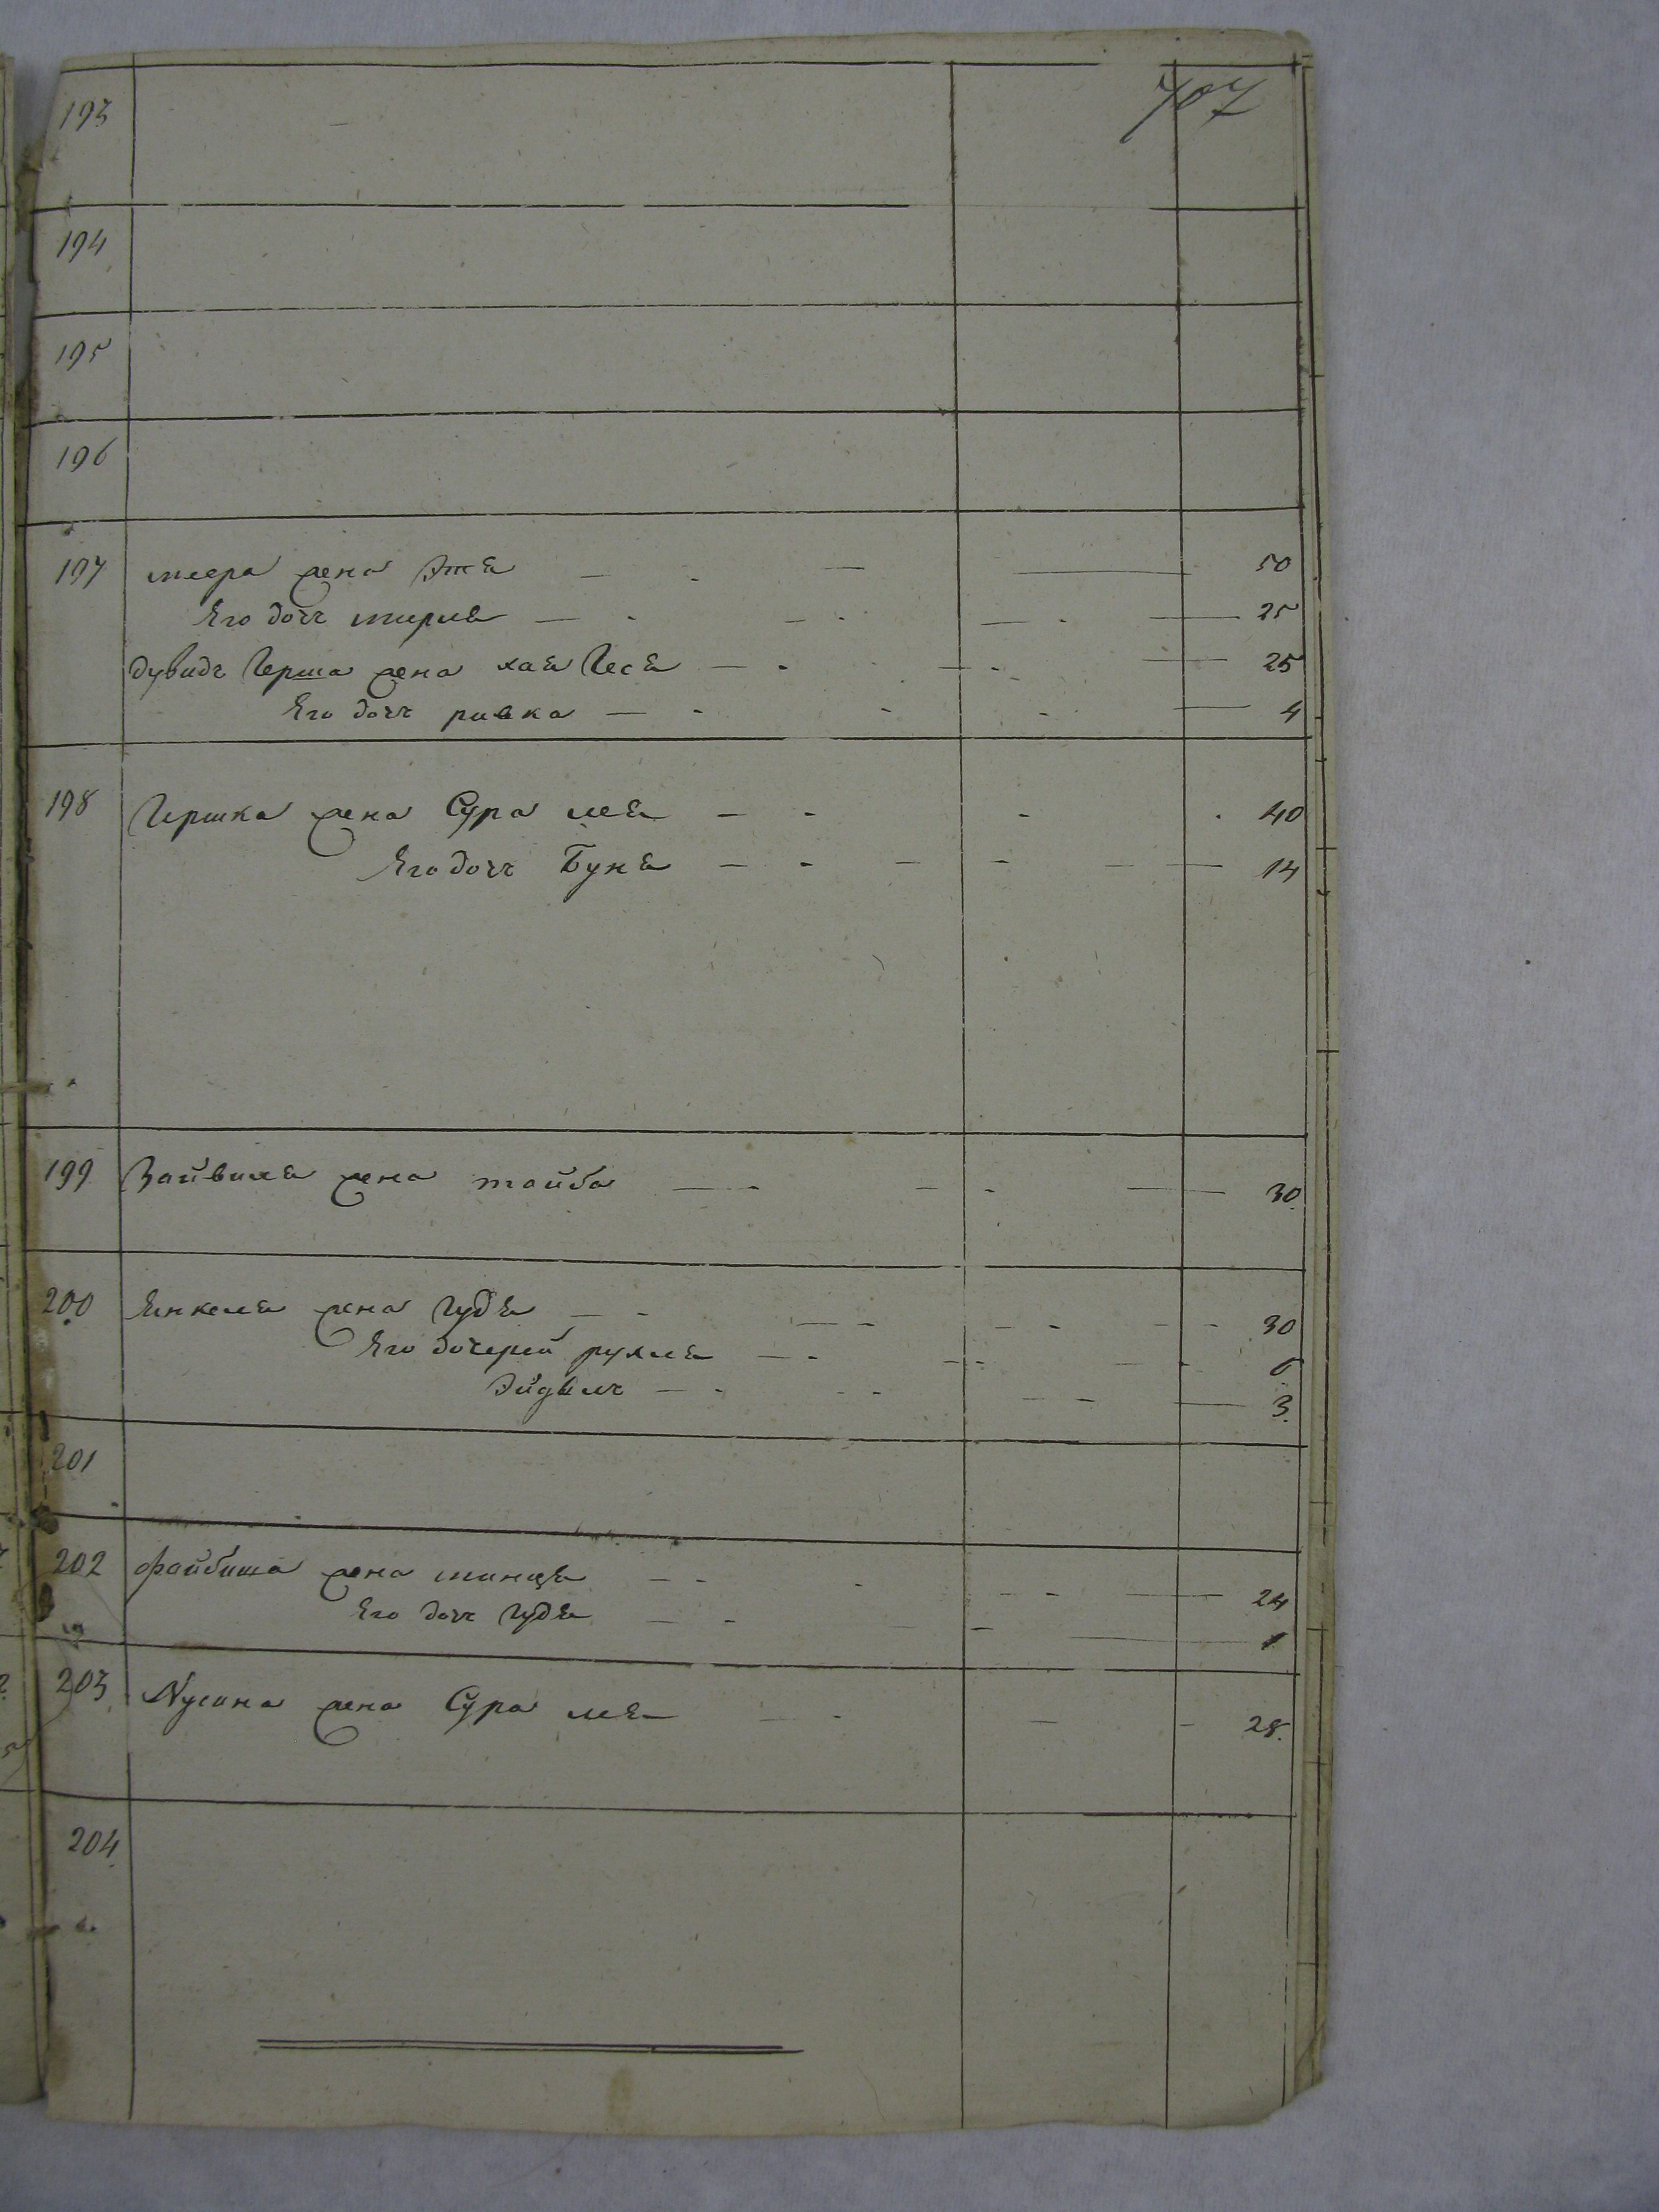 707
193
194
195
196
197 меера жена Этя 50
Его дочь мирля 25
дувидъ Герша жена хая Песя 25
Его дочь ривка 4
198 Гершка жена Сура лея 40
Его дочь Буня 14
199 Зайвиля жена тайба 30
200 Янкеля жена Гудя 30
Его дочерей рухля 6
Эйдвль 3
201
202 файбиша жена минця 24
Его дочь Гудя 1
203 Нусина жена Сура лея 28
204